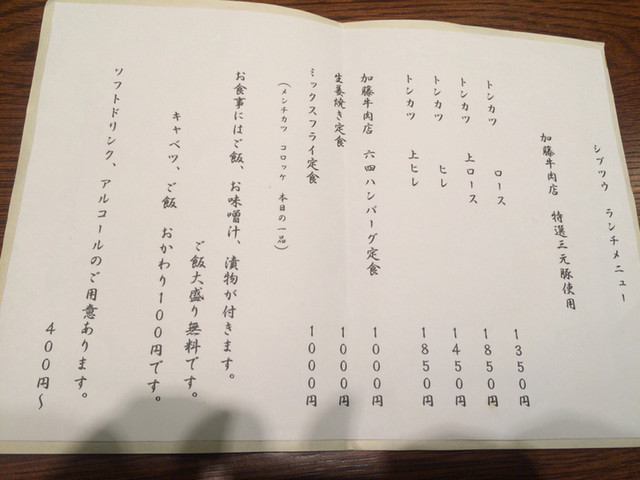 シブツウ ランチメニュー
加藤牛肉店 特選三元豚使用
トンカツ ロース 1350円
トンカツ 上ロース 1850円
トンカツ ヒレ 1450円
トンカツ 上ヒレ 1850円
加藤牛肉店 六四ハンバーグ定食 1000円
生姜焼き定食 1000円
ミックスフライ定食 1000円
(メンチカツ コロッケ 本日の一品)
お食事にはご飯、お味噌汁、漬物が付きます。
ご飯大盛り無料です。
キャベツ、ご飯 おかわり100円です。
ソフトドリンク、アルコールのご用意あります。
400円〜